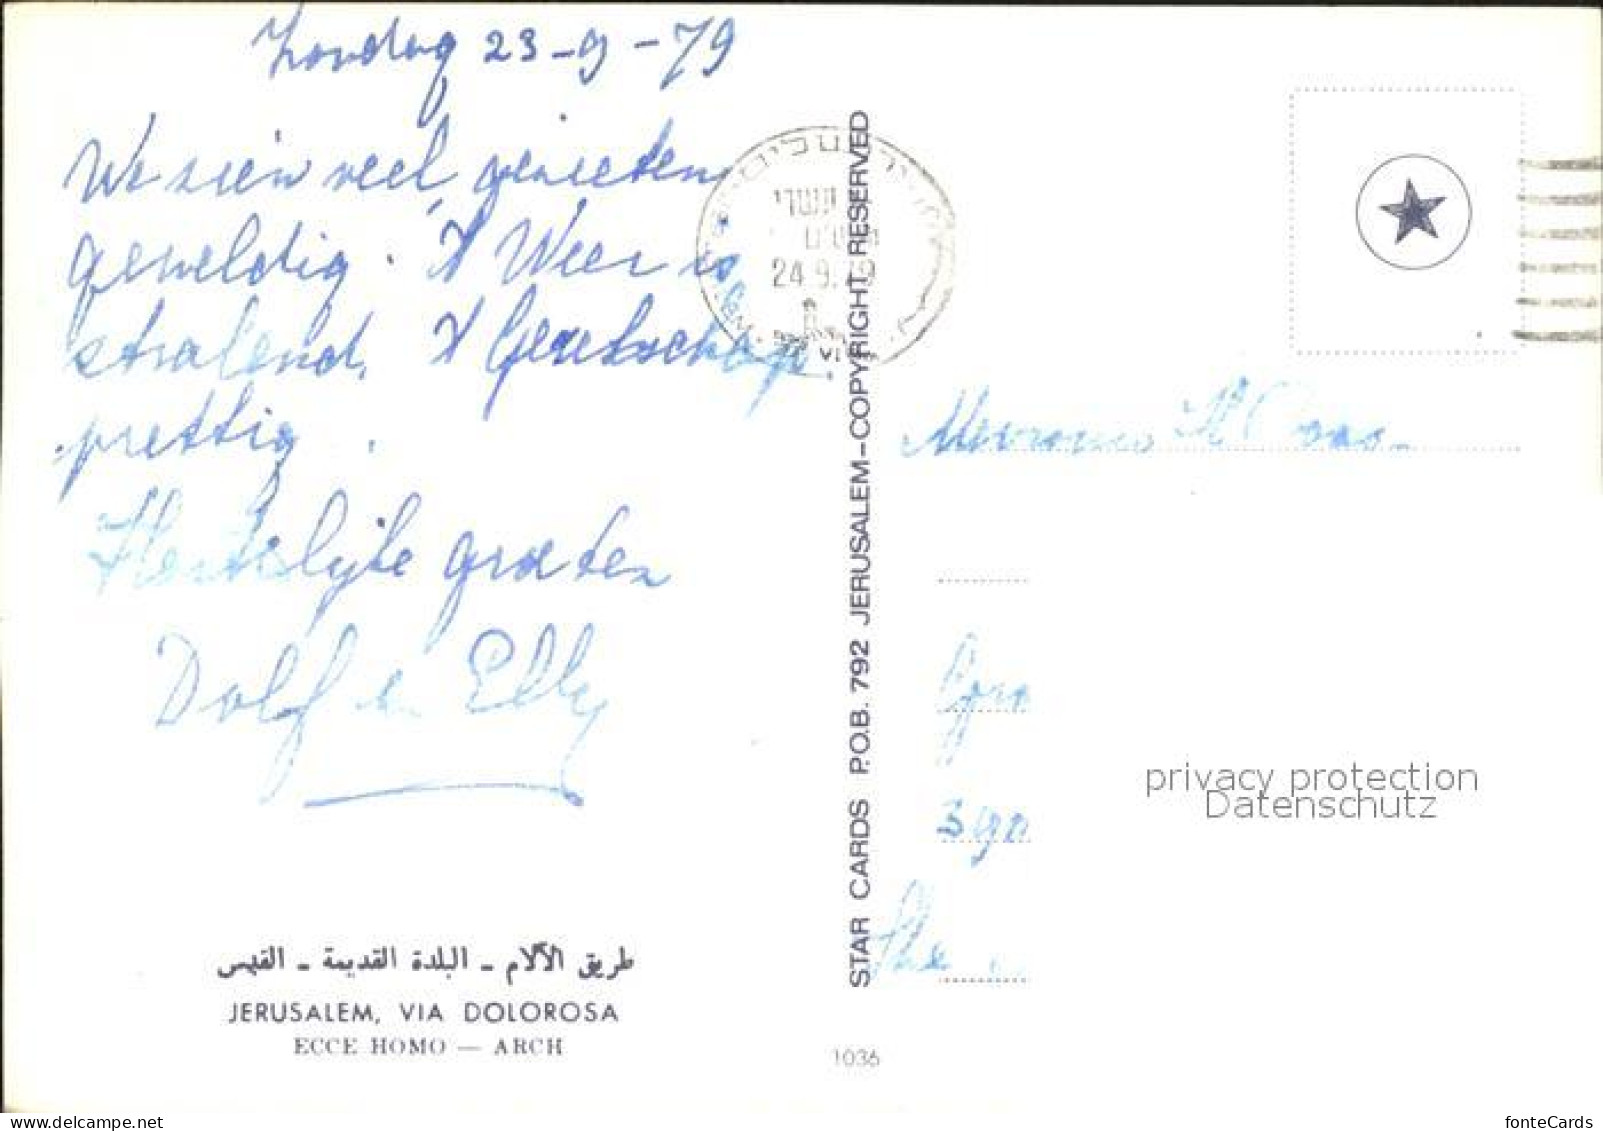 Zondag 23-9-79
We zien veel, genieten
geweldig. 't Weer is
stralend. 't Gezelschap
prettig.
Hartelijke groeten
Dolf en Elly
طريق الآلام - البلدة القديمة - القدس
JERUSALEM, VIA DOLOROSA
ECCE HOMO — ARCH
STAR CARDS P.O.B. 792 JERUSALEM—COPYRIGHT RESERVED
1036
24.9.79
Mevrouw
privacy protection
Datenschutz
delcampe.net
fonteCards